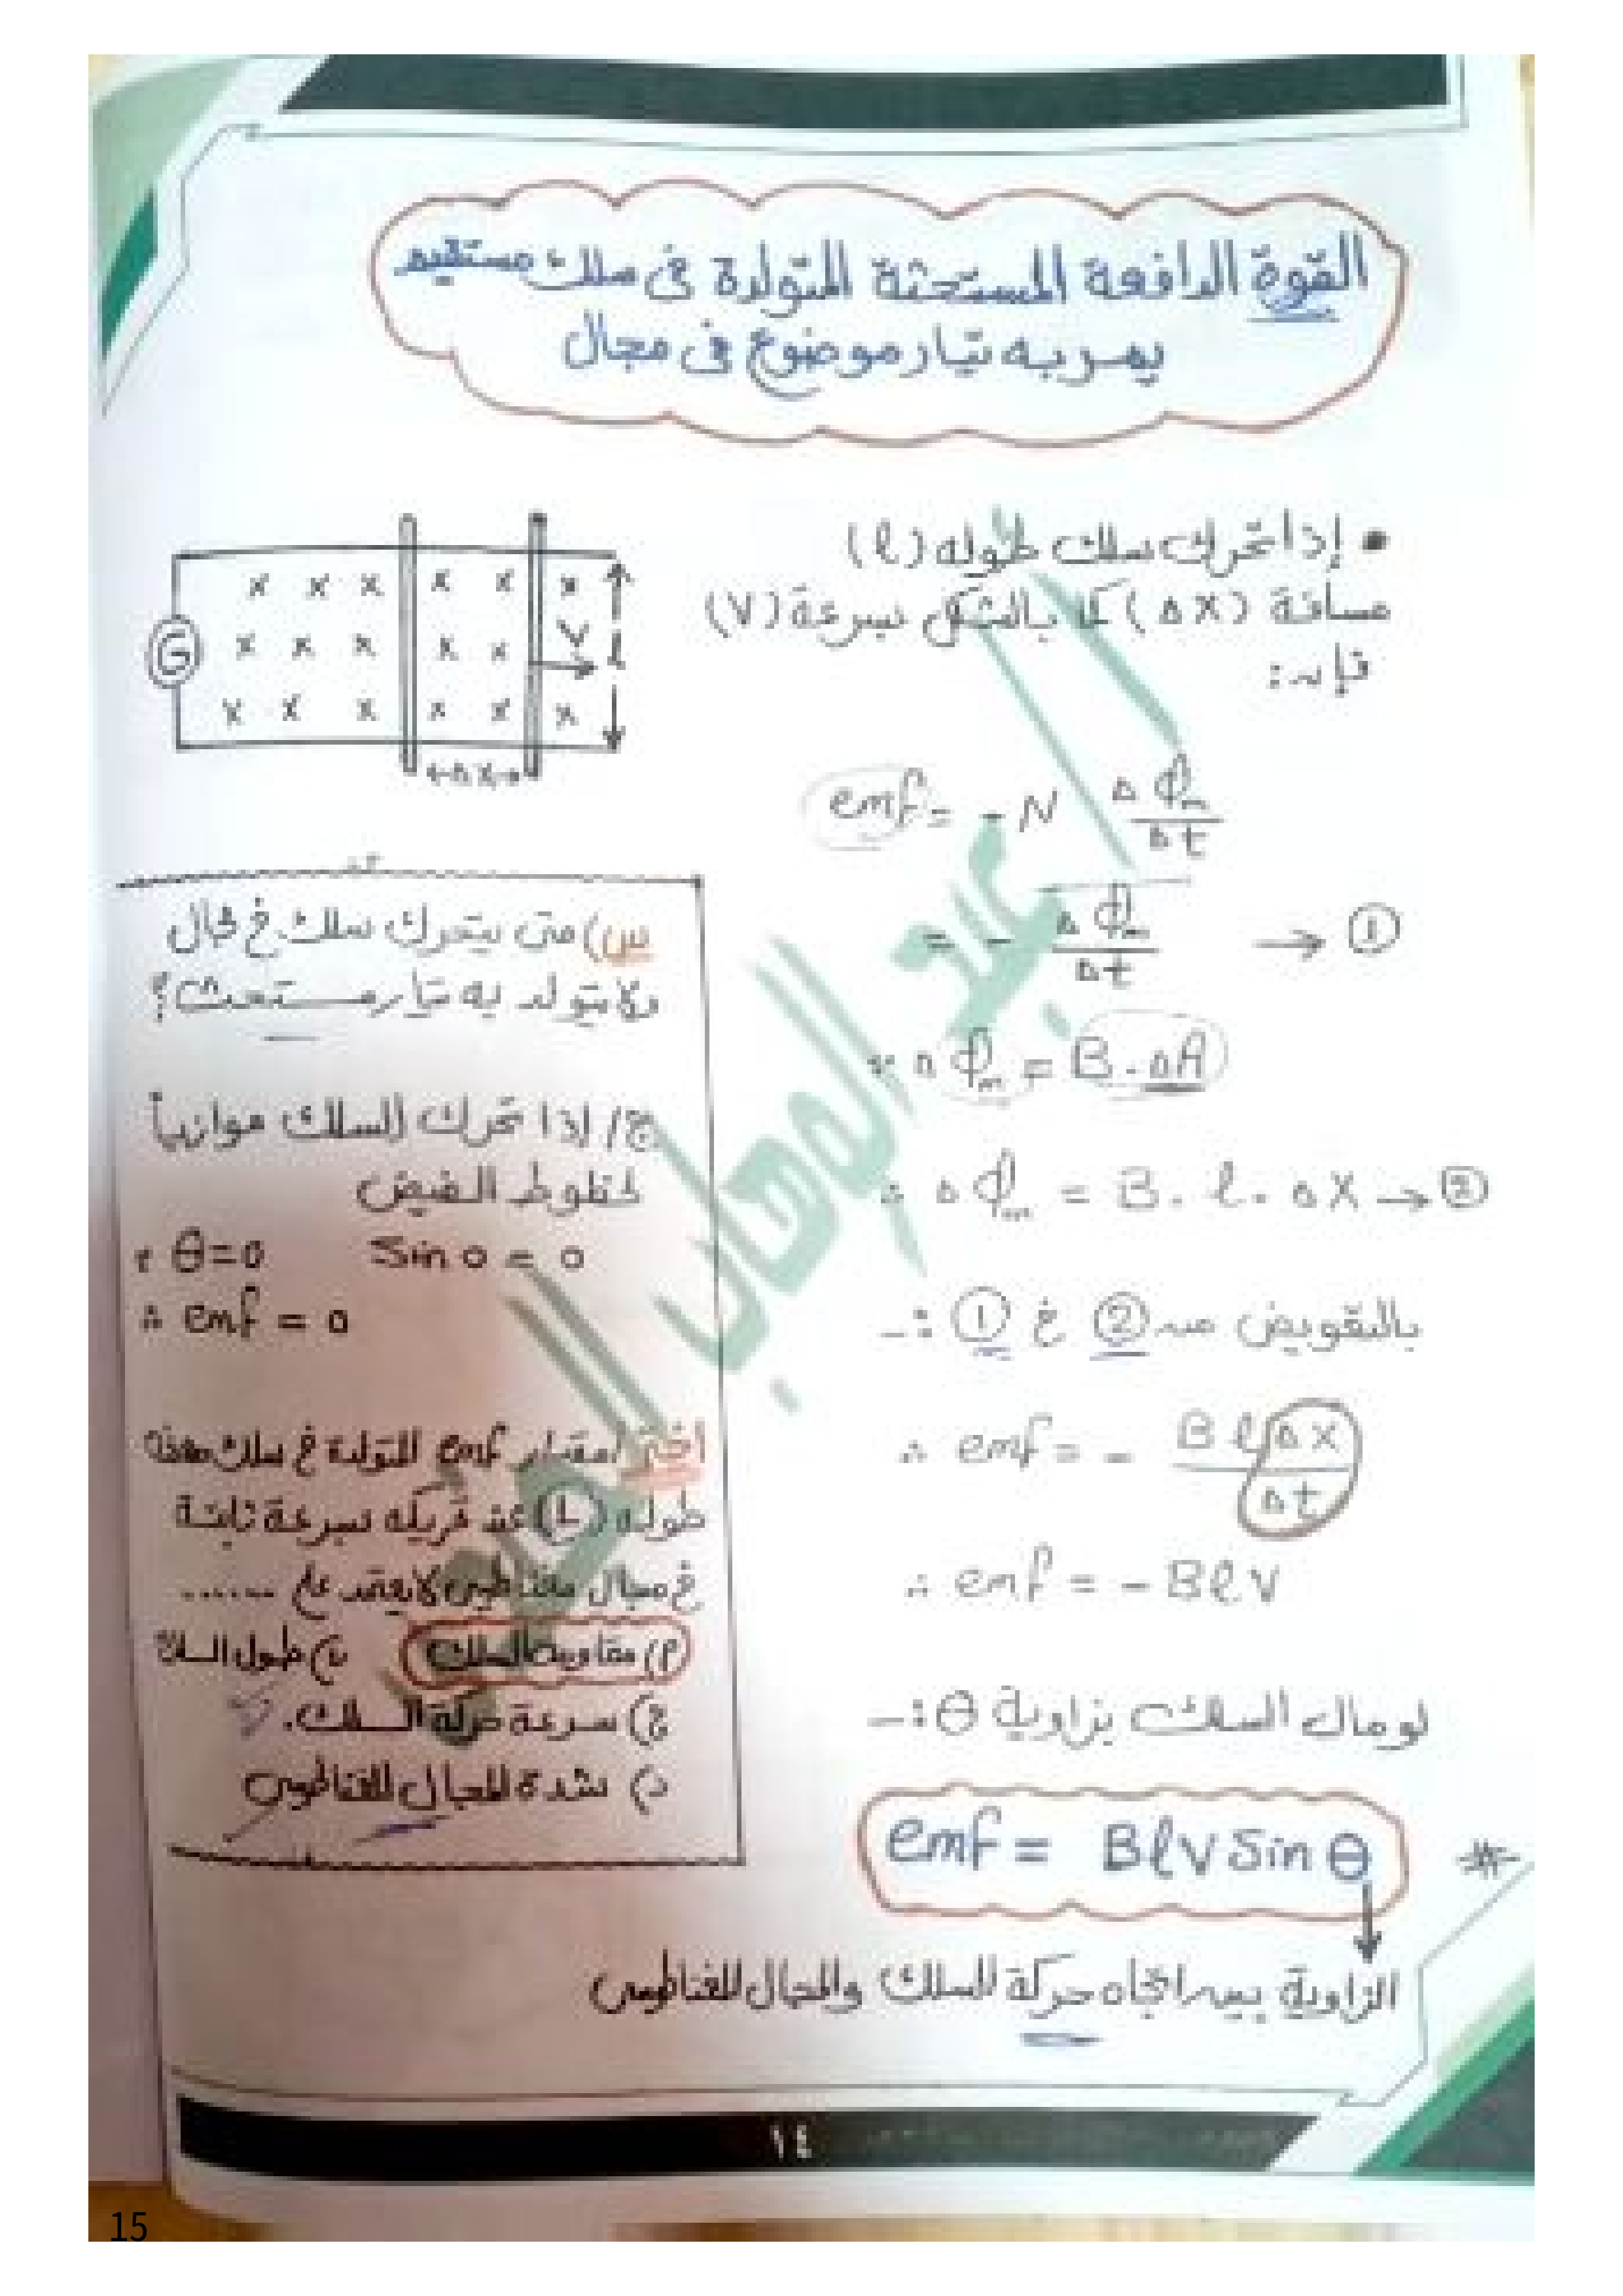 القوة الدافعة المستحثة المتولدة فى سلك مستقيم
يمر به تيار موضوع فى مجال
• إذا تحرك سلك طوله (ℓ)
مسافة (Δx) كما بالشكل بسرعة (V)
فإنه :
G
x x x x x x
x x x x x
V
ℓ
x x x x x x
←Δx→
emf = - N Δφm / Δt
= - Δφm / Δt → ①
∵ Δφm = B . ΔA
∴ Δφm = B . ℓ . Δx → ②
بالتعويض من ② في ① :-
∴ emf = - B ℓ Δx / Δt
∴ emf = - B ℓ V
لو مال السلك بزاوية θ :-
emf = B ℓ V Sin θ
الزاوية بين اتجاه حركة السلك والمجال المغناطيسى
س) متى يتحرك سلك في مجال
ولا يتولد به تيار مستحث ؟
ج/ إذا تحرك السلك موازياً
لخطوط الفيض
θ = 0 Sin 0 = 0
∴ emf = 0
اختر / مقدار emf المتولدة في سلك معدنه
طوله (L) عند تحريكه بسرعة ثابتة
في مجال مغناطيسى لا يعتمد على ......
م) مقاومة السلك ب) طول السلك
ج) سرعة حركة السلك.
د) شدة المجال المغناطيسى
عبد الوهاب
١٤
15